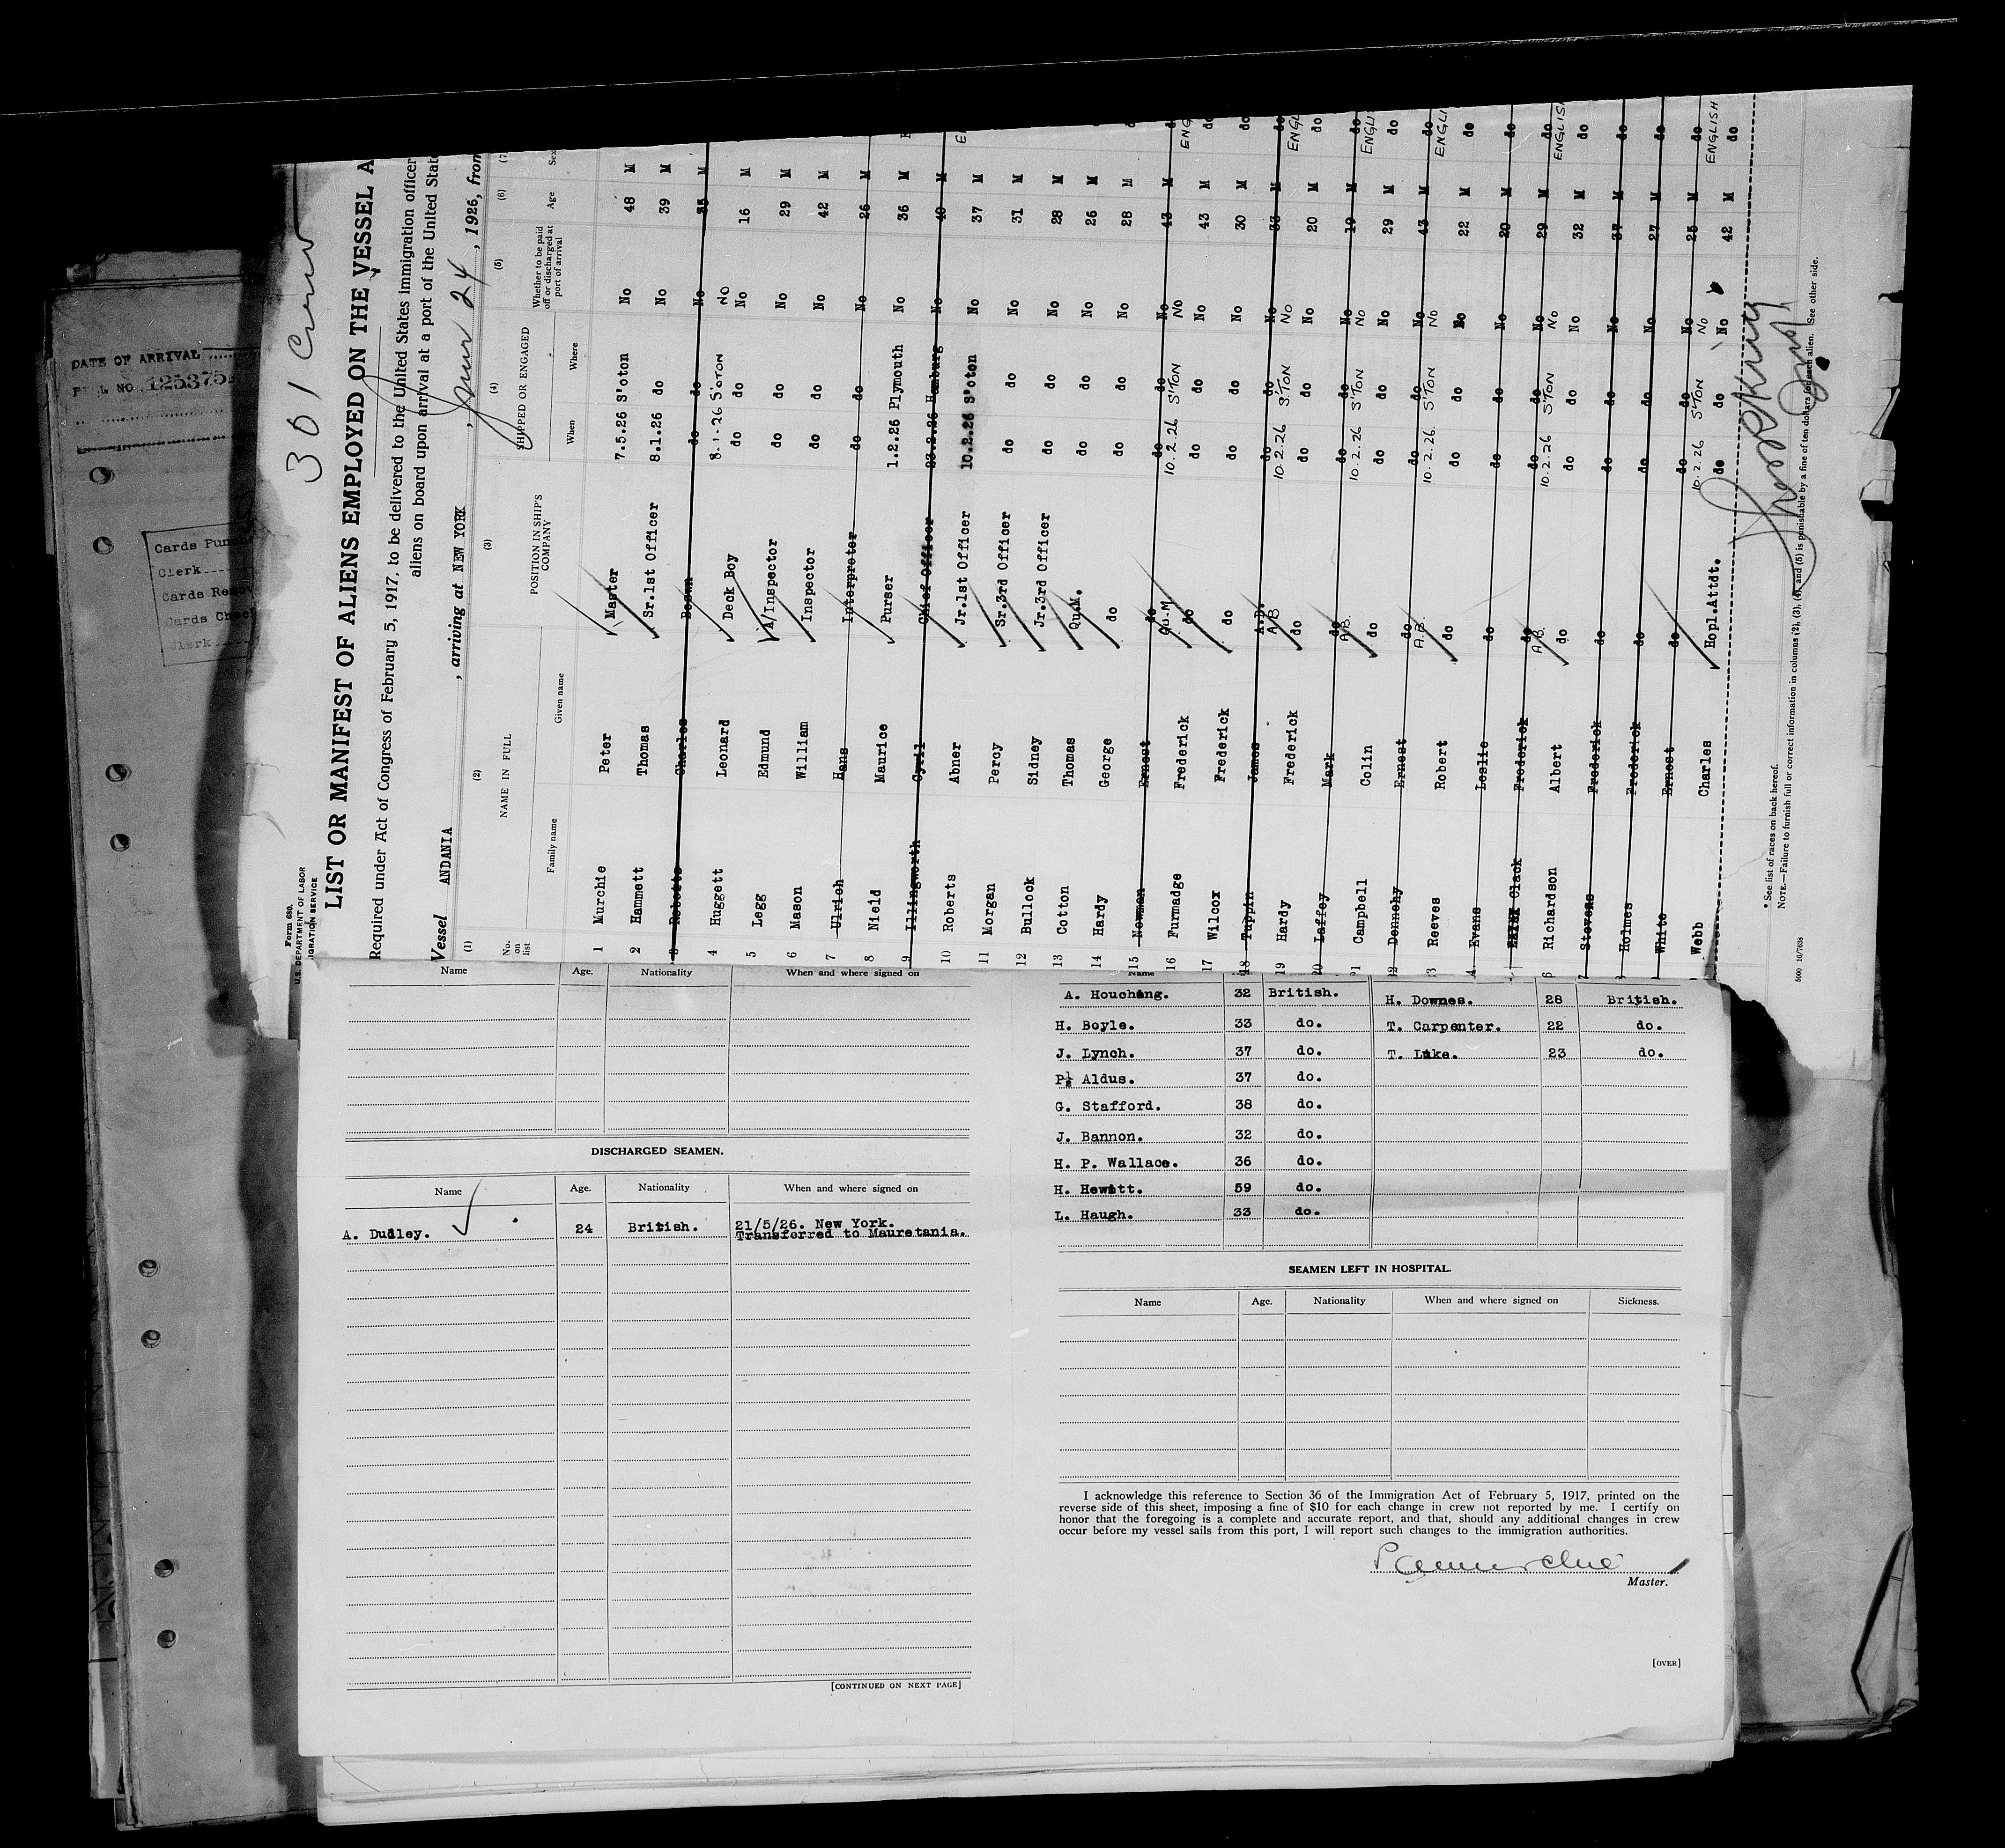 DATE OF ARRIVAL
125375
Cards Punc
Clerk
Cards Remov
Cards Chec
Clerk
301 Crew
Form 680.
U.S. DEPARTMENT OF LABOR
IGRATION SERVICE
LIST OR MANIFEST OF ALIENS EMPLOYED ON THE VESSEL A
Required under Act of Congress of February 5, 1917, to be delivered to the United States immigration officer
aliens on board upon arrival at a port of the United Stat
Vessel ANDANIA , arriving at NEW YORK , 24 , 1926, from
(1) (2) (3) (4) (5) (6) (7)
No. on list NAME IN FULL POSITION IN SHIP'S COMPANY SHIPPED OR ENGAGED Whether to be paid off or discharged at port of arrival Age Sex
Family name Given name When Where
1 Murchie Peter Master 7.5.26 S'oton No 48 M
2 Hammett Thomas Sr.1st Officer 8.1.26 do No 39 M
3 Roberts Charles Boswn do do No 35 M
4 Huggett Leonard Deck Boy 8.1-26 S'TON do do NO No 16 M
5 Legg Edmund A/Inspector do do No 29 M
6 Mason William Inspector do do No 42 M
7 Ulrich Hans Interpreter do do No 26 M
8 Nield Maurice Purser 1.2.26 Plymouth No 36 M
9 Illingworth Cyril Chief Officer 23.2.26 Hamburg No 40 M
10 Roberts Abner Jr.1st Officer 10.2.26 S'oton No 37 M
11 Morgan Percy Sr.3rd Officer do do No 31 M
12 Bullock Sidney Jr.3rd Officer do do No 28 M
13 Cotton Thomas Qu.M. do do No 26 M
14 Hardy George do do do No 28 M
15 Newman Ernest do do do No 43 M do
16 Furmadge Frederick Qu.M. do 10.2.26 S'TON do do No No 43 M ENG do
17 Wilcox Frederick do do do No 30 M do
18 Tuppin James A.B. do do No 33 M do
19 Hardy Frederick A/B do 10.2.26 S'TON do do No No 20 M ENGL do
20 Laffey Mark do do do No 19 M do
21 Campbell Colin A/B. do 10.2.26 S'TON do do No No 29 M ENGLI do
22 Dennehy Ernest do do do No 43 M do
23 Reeves Robert A.B. do 10.2.26. S'TON do do No No 22 M ENGLI do
4 Evans Leslie do do do No 20 M do
Clack Frederick do do do No 29 M do
6 Richardson Albert A.B. do 10.2.26 S'TON do do No No 32 M ENGLIS do
Stevens Frederick do do do No 37 M do
Holmes Frederick do do do No 27 M do
White Ernest do do do No 25 M do
Webb Charles Hopl.Attdt. 10.2.26 S'TON do do No No 42 M ENGLISH do
* See list of races on back hereof.
NOTE.—Failure to furnish full or correct information in columns (2), (3), (4), and (5) is punishable by a fine of ten dollars for each alien. See other side.
5000 16/7638
Name Age. Nationality When and where signed on
DISCHARGED SEAMEN.
Name Age. Nationality When and where signed on
A. Dudley. 24 British. 21/5/26. New York.
Transferred to Mauretania.
[CONTINUED ON NEXT PAGE]
Name
A. Houching. 32 British. H. Downes. 28 British.
H. Boyle. 33 do. T. Carpenter. 22 do.
J. Lynch. 37 do. T. Luke. 23 do.
P. Aldus. 37 do.
G. Stafford. 38 do.
J. Bannon. 32 do.
H. P. Wallace. 36 do.
H. Hewitt. 59 do.
L. Haugh. 33 do.
SEAMEN LEFT IN HOSPITAL.
Name Age. Nationality When and where signed on Sickness.
I acknowledge this reference to Section 36 of the Immigration Act of February 5, 1917, printed on the
reverse side of this sheet, imposing a fine of $10 for each change in crew not reported by me. I certify on
honor that the foregoing is a complete and accurate report, and that, should any additional changes in crew
occur before my vessel sails from this port, I will report such changes to the immigration authorities.
Master.
[OVER]